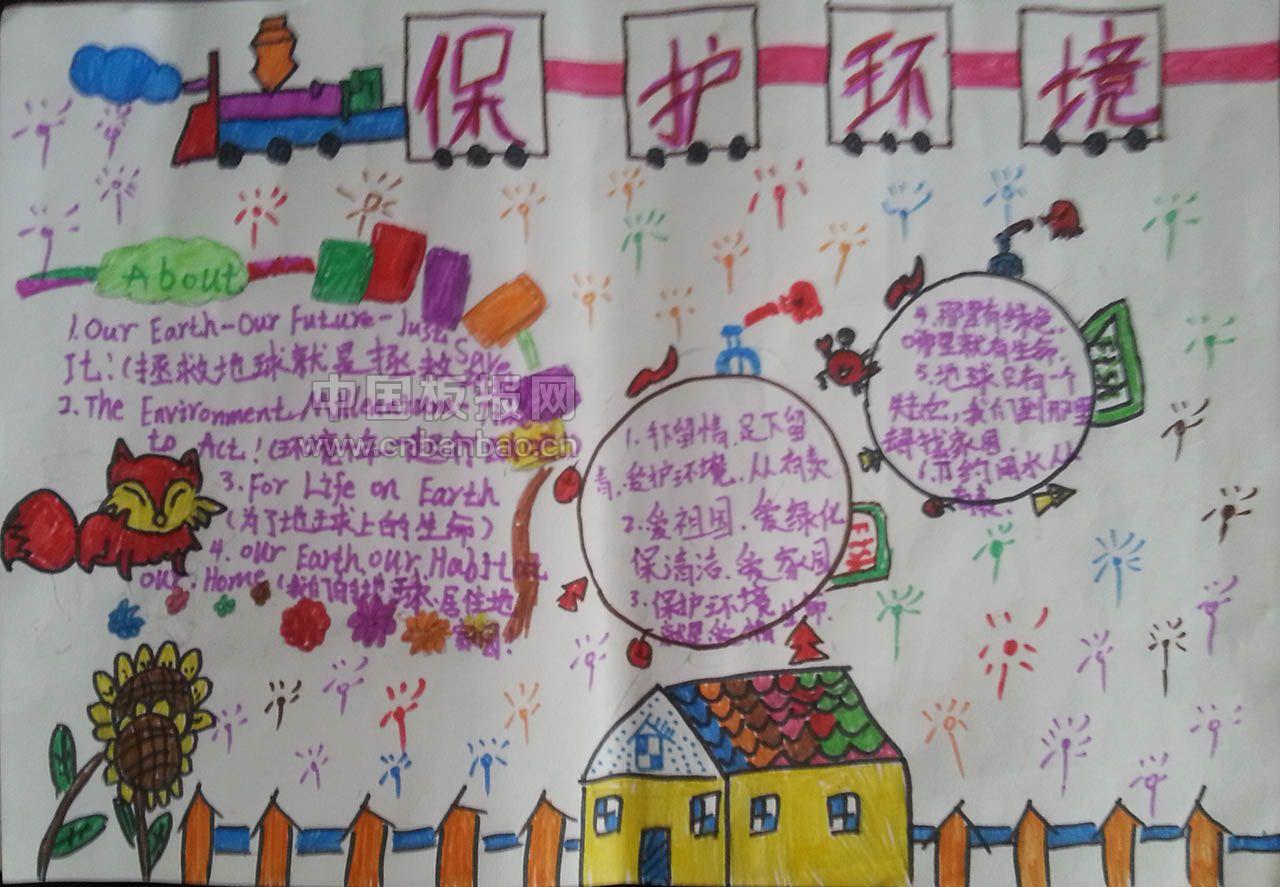 保护环境
About
1. Our Earth-Our Future-Just Save
It: (拯救地球就是拯救
2. The Environment Millennium
to Act! (环境
3. For Life on Earth
(为了地球上的生命)
4. Our Earth, Our Habitat
our Home (我们的地球、居住地
家园.
1. 手留情、足下留
青、爱护环境、从
2. 爱祖国、爱绿化
保清洁、爱家园
3. 保护环境
就是
4. 那里有绿色,
哪里就有生命.
5. 地球只有一个
失去她,我们到那里
寻找家园
节约用水从
中国板报网
www.cnbanbao.cn